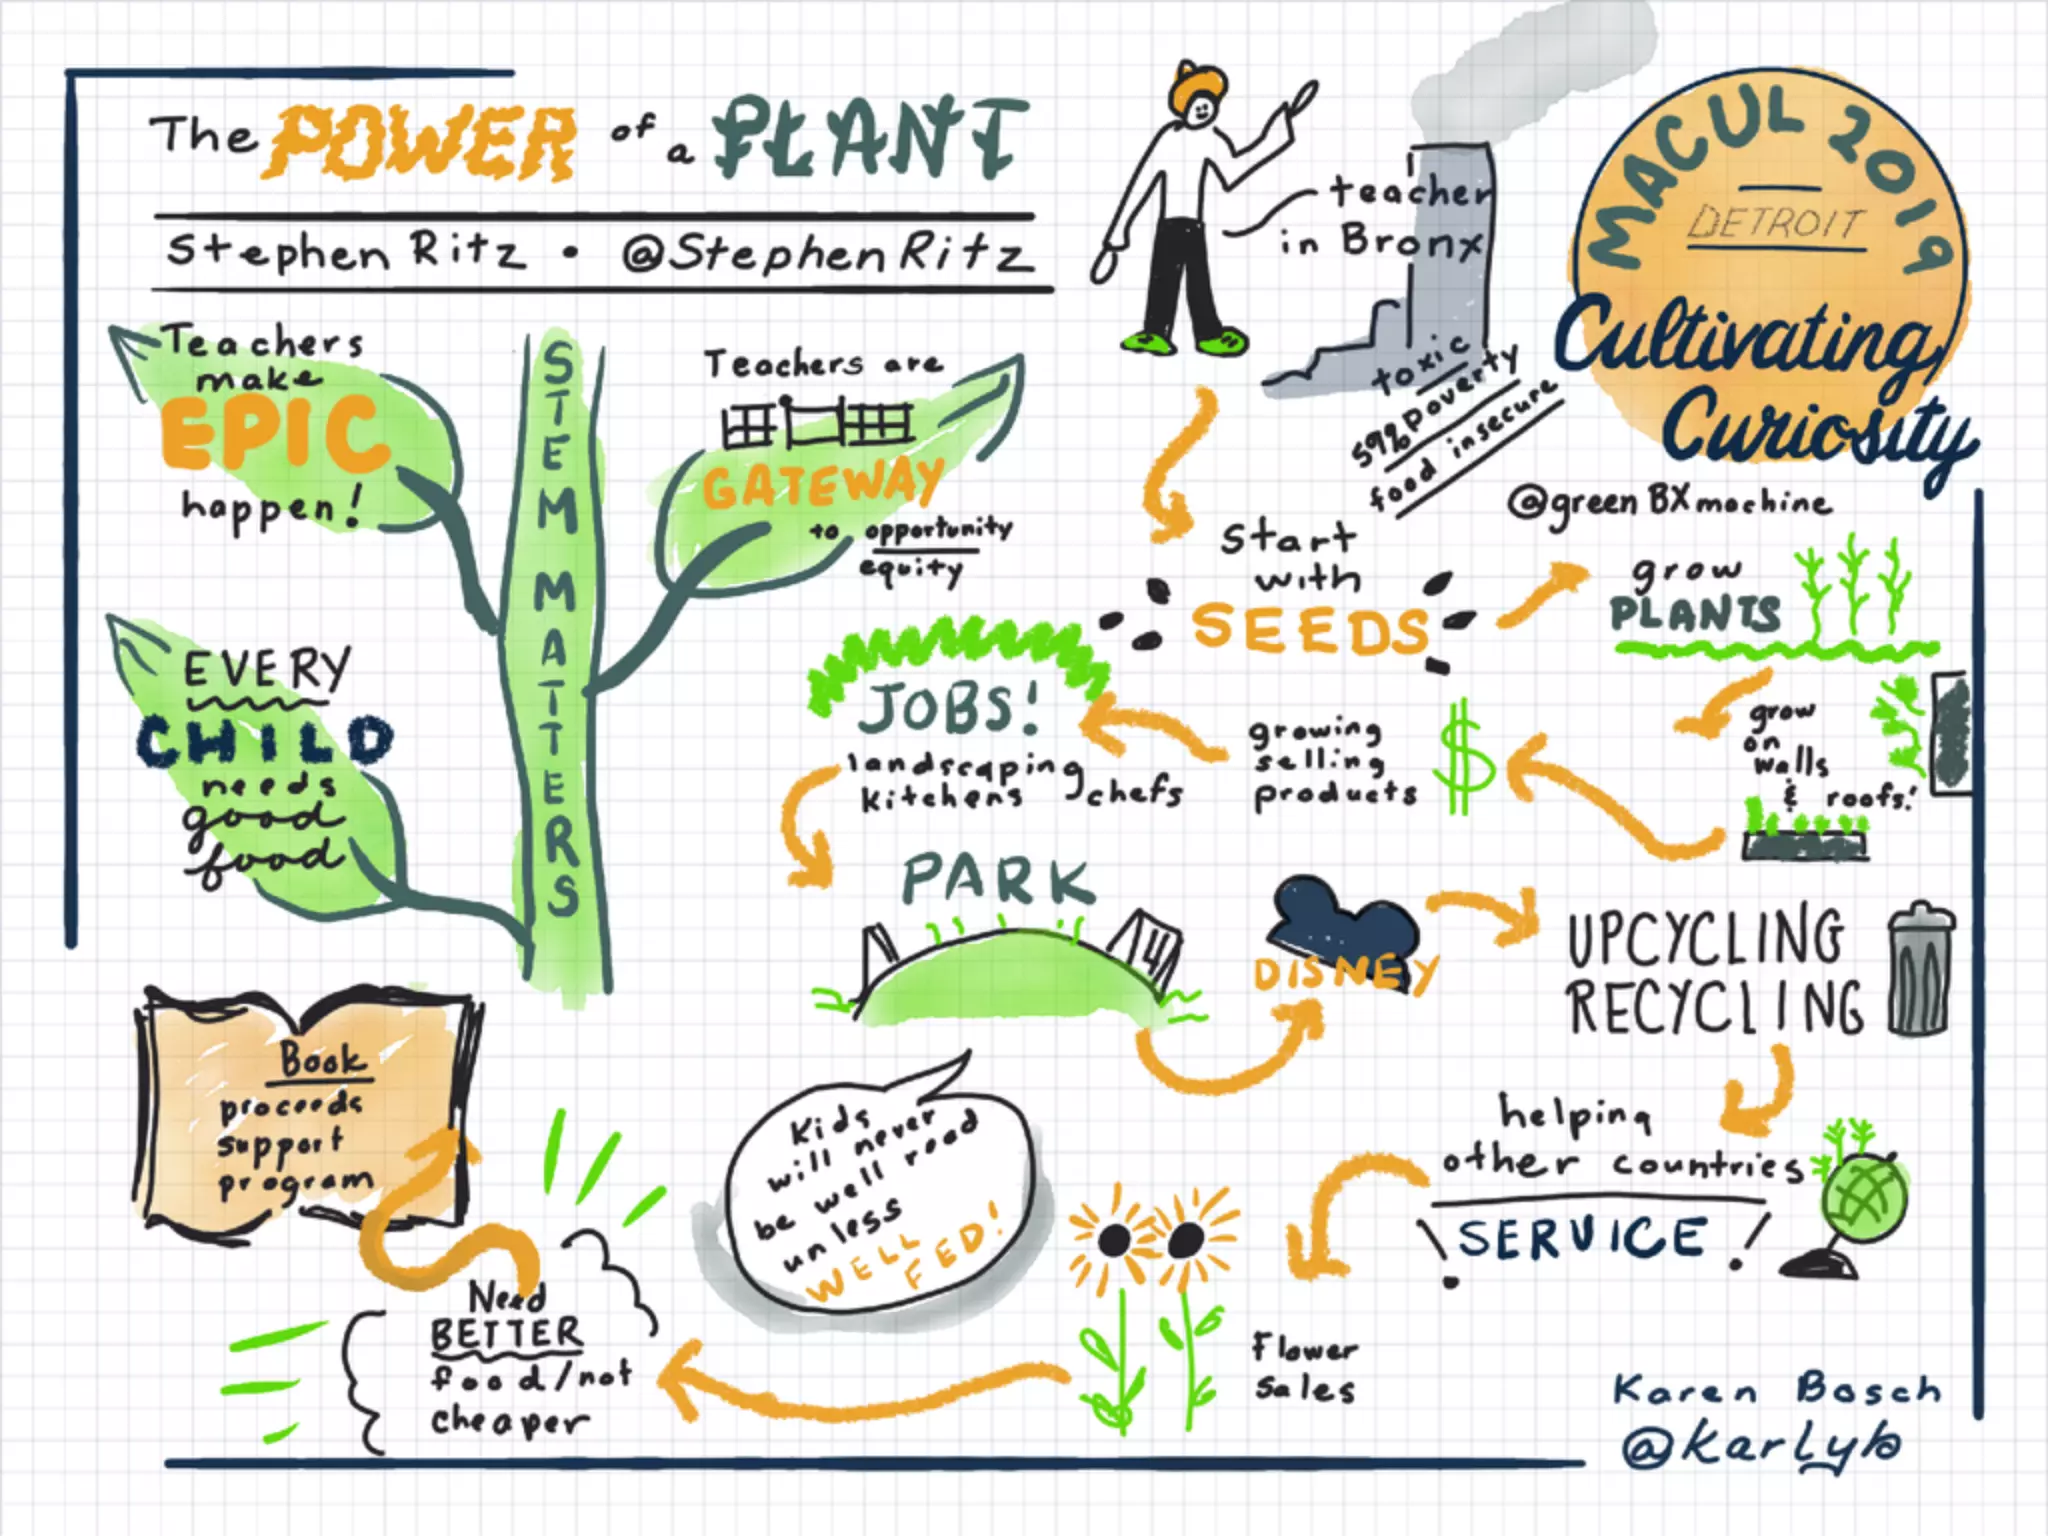 The POWER of a PLANT
Stephen Ritz • @StephenRitz
teacher
in Bronx
toxic
59% poverty
food insecure
MACUL 2019
DETROIT
Cultivating
Curiosity
@greenBXmachine
STEM MATTERS
Teachers
make
EPIC
happen!
Teachers are
GATEWAY
to opportunity
equity
EVERY
CHILD
needs
good
food
Start
with
SEEDS
grow
PLANTS
grow
on
walls
& roofs!
growing
selling
products
$
JOBS!
landscaping
kitchens chefs
PARK
4
DISNEY
UPCYCLING
RECYCLING
helping
other countries
! SERVICE !
Flower
Sales
Kids
will never
be well read
unless
WELL
FED!
Need
BETTER
food/not
cheaper
Book
proceeds
support
program
Karen Bosch
@karlyb